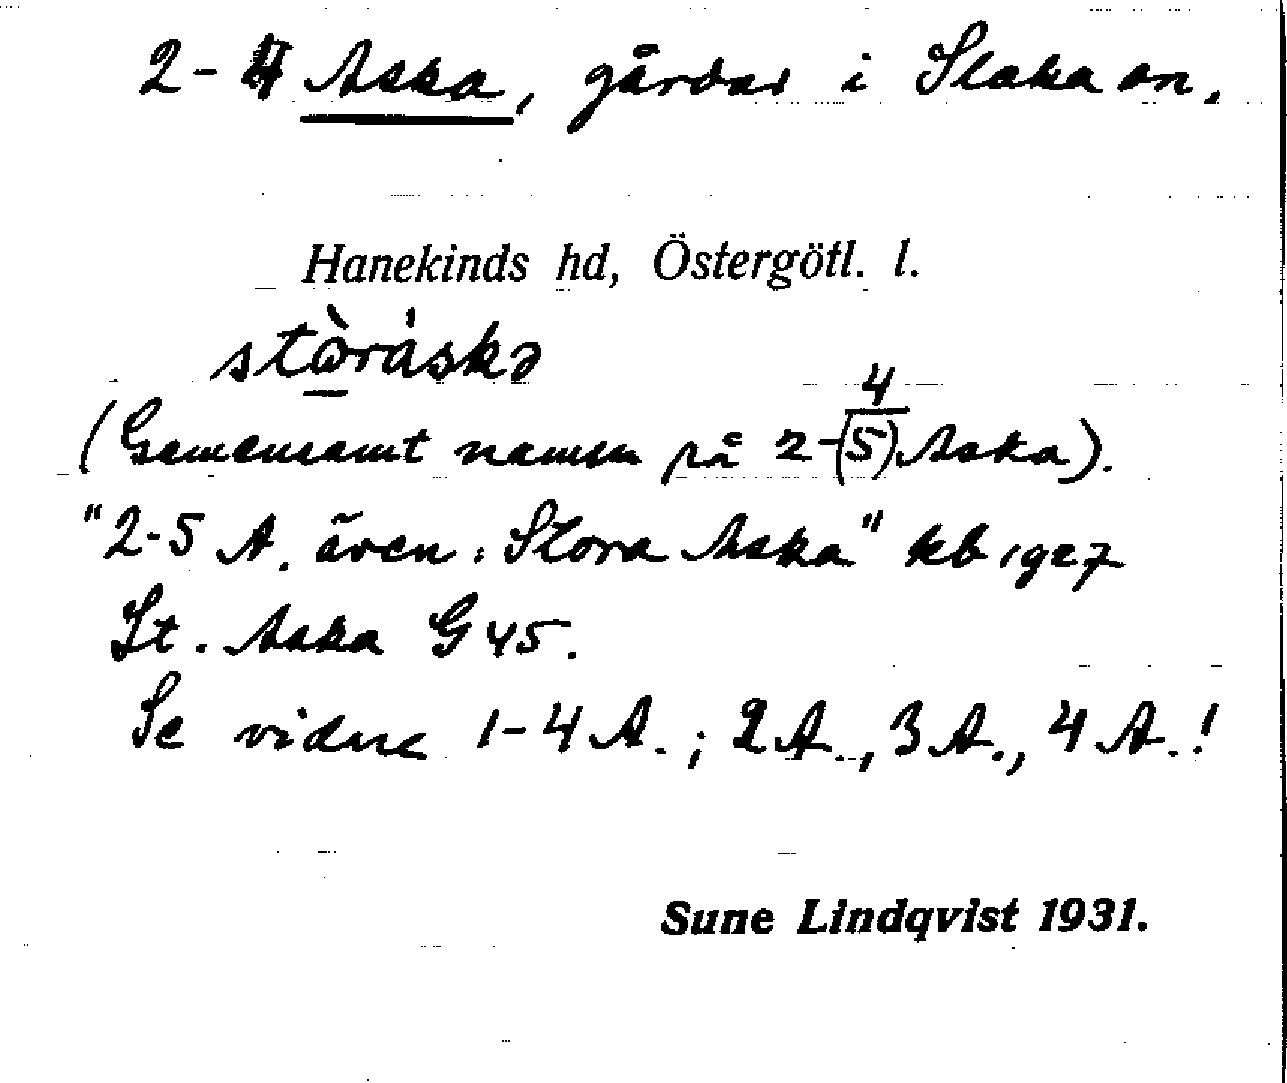 2-4 Aska, gårdar i Slaka sn.
Hanekinds hd, Östergötl. l.
stò̱ráskə
(Gemensamt namn på 2-(5) 4 Aska).
"2-5 A. även: Stora Aska" kb 1927
St. Aska G 45.
Se vidare 1-4 A.; 2 A., 3 A., 4 A.!
Sune Lindqvist 1931.